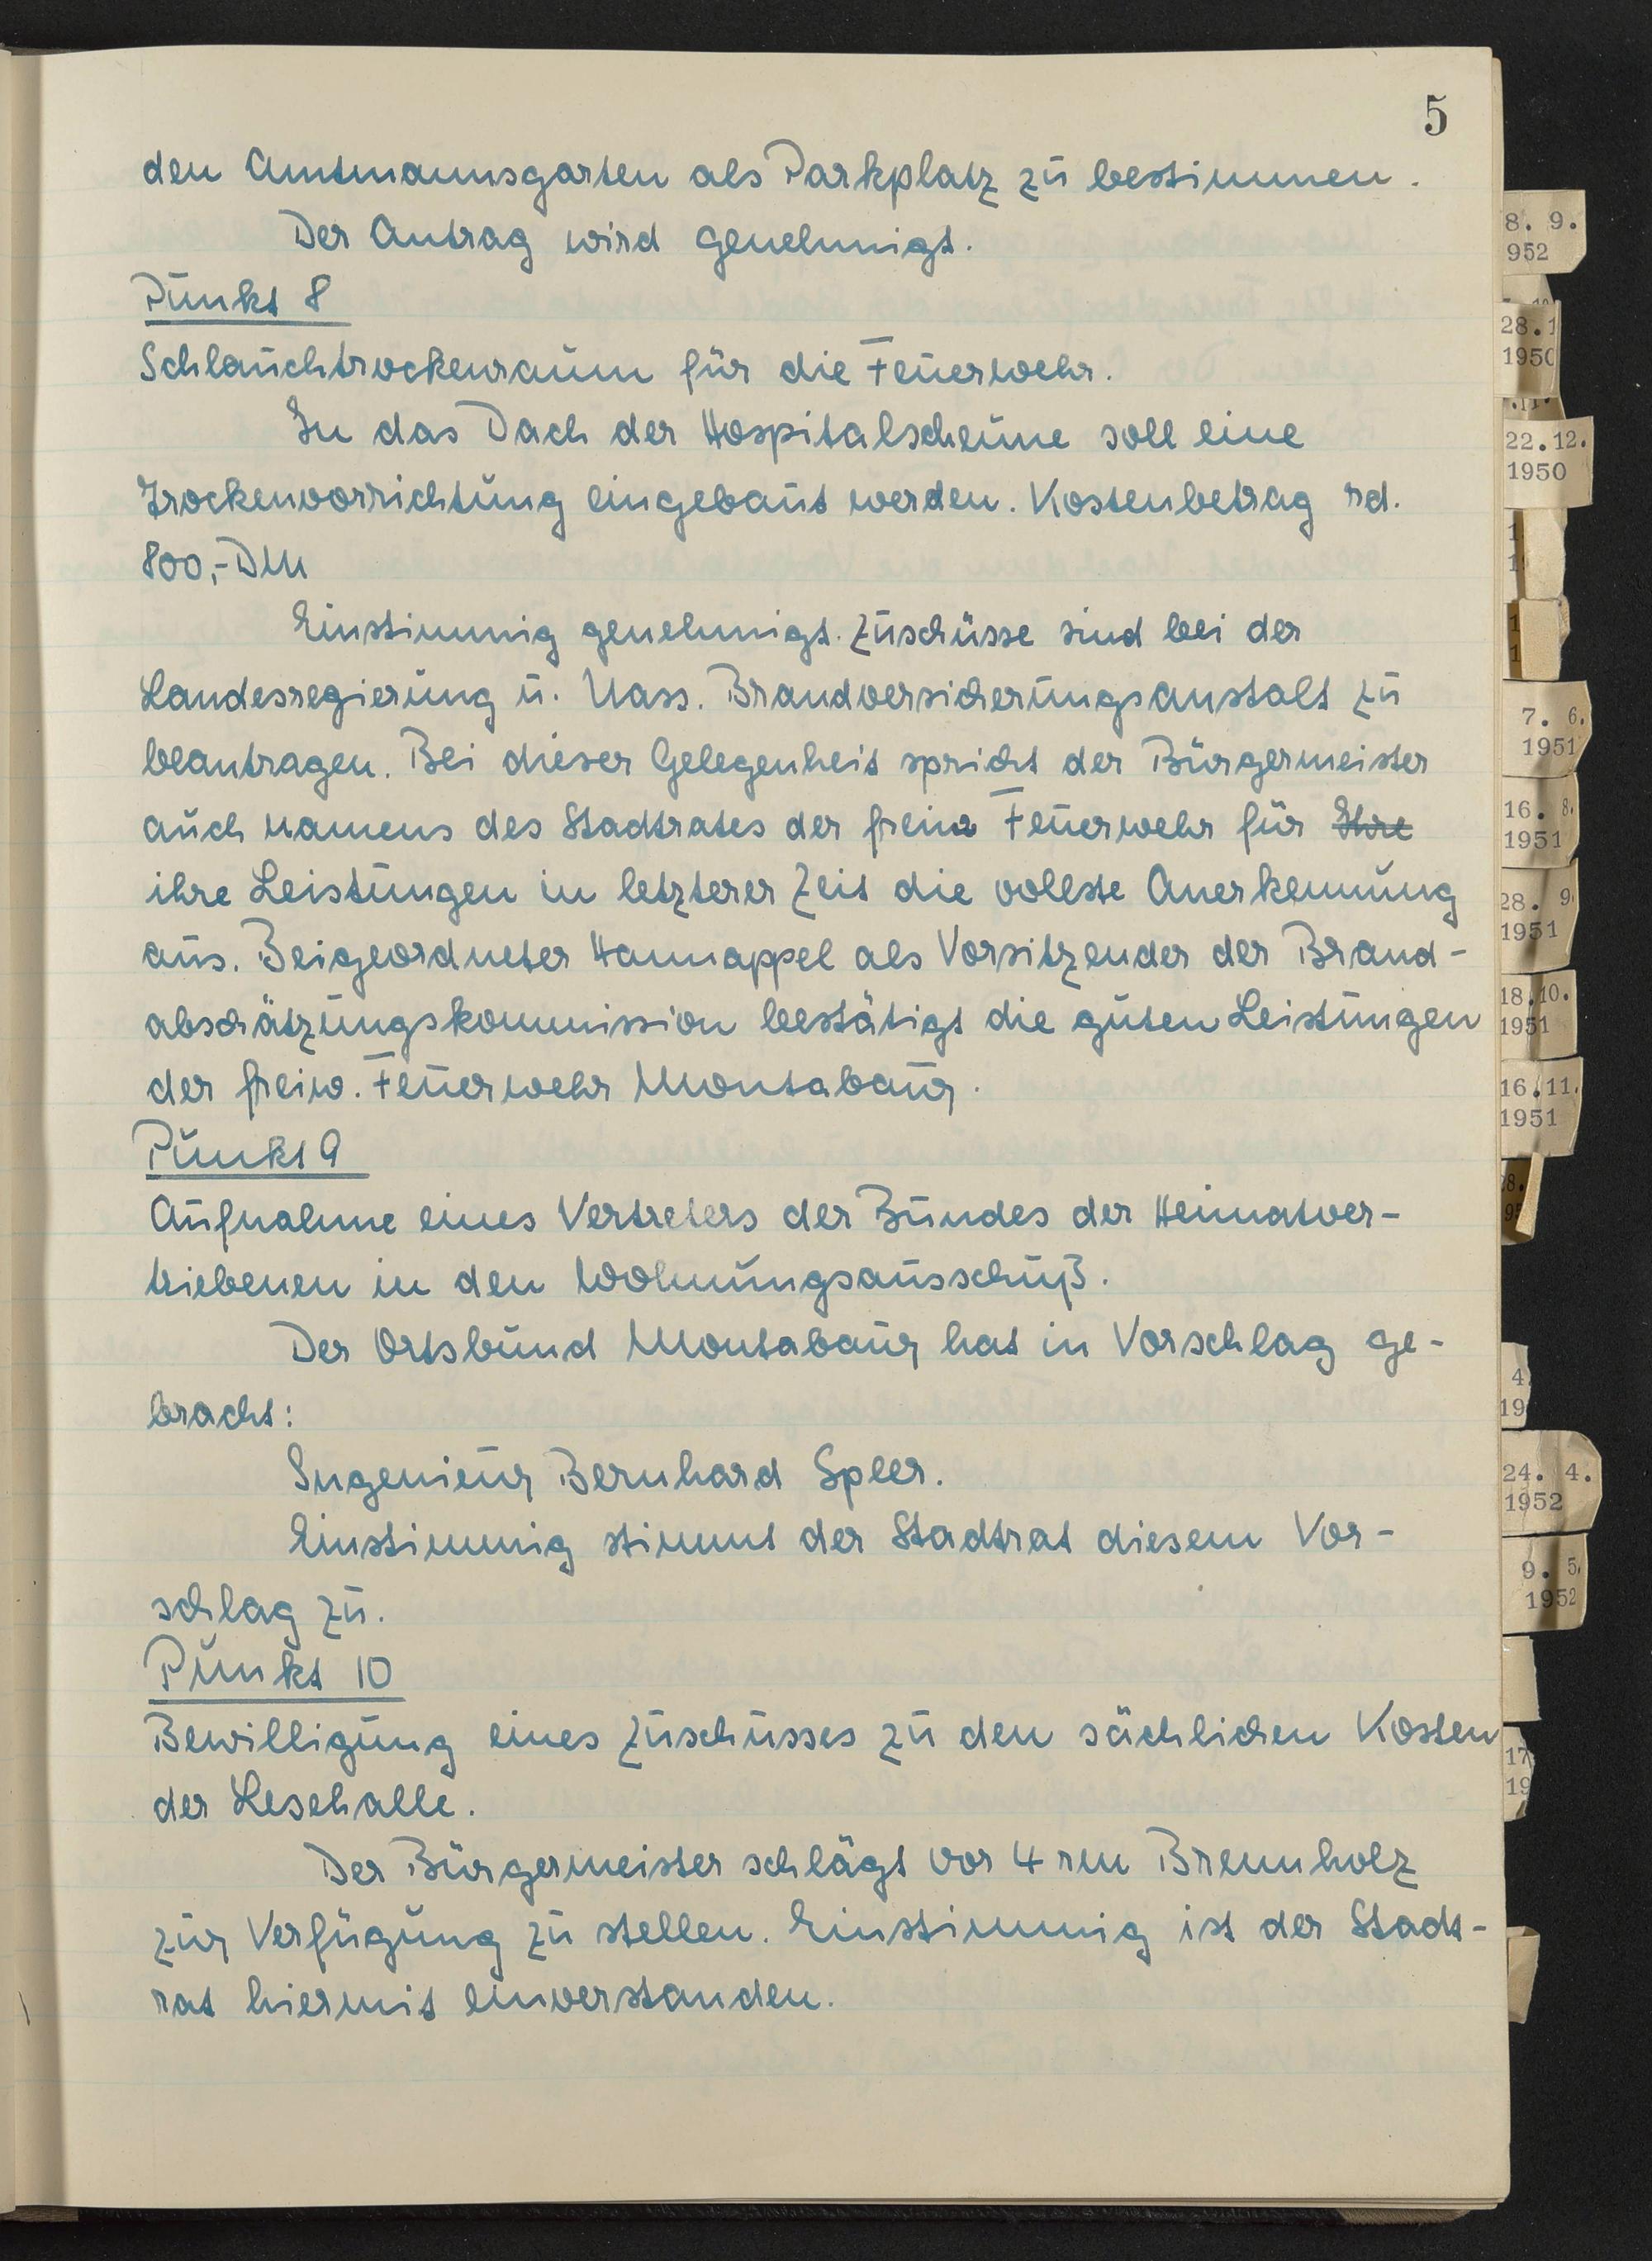 5
den Amtmannsgarten als Parkplatz zu bestimmen.
Der Antrag wird genehmigt.
Punkt 8
Schlauchtrockenraum für die Feuerwehr.
In das Dach der Hospitalscheune soll eine
Trockenvorrichtung eingebaut werden. Kostenbetrag rd.
800,- DM
Einstimmig genehmigt. Zuschüsse sind bei der
Landesregierung u. Nass. Brandversicherungsanstalt zu
beantragen. Bei dieser Gelegenheit spricht der Bürgermeister
auch namens des Stadtrates der freiw. Feuerwehr für Ihre
ihre Leistungen in letzterer Zeit die vollste Anerkennung
aus. Beigeordneter Hannappel als Vorsitzender der Brand-
abschätzungskommission bestätigt die guten Leistungen
der freiw. Feuerwehr Montabaur.
Punkt 9
Aufnahme eines Vertreters der Bundes der Heimatver-
triebenen in den Wohnungsausschuß.
Der Ortsbund Montabaur hat in Vorschlag ge-
bracht:
Ingenieur Bernhard Speer.
Einstimmig stimmt der Stadtrat diesem Vor-
schlag zu.
Punkt 10
Bewilligung eines Zuschusses zu den sächlichen Kosten
der Lesehalle.
Der Bürgermeister schlägt vor 4 rm Brennholz
zur Verfügung zu stellen. Einstimmig ist der Stadt-
rat hiermit einverstanden.
8. 9.
952
28.1
1950
22.12.
1950
7. 6.
1951
16. 8.
1951
28. 9
1951
18.10.
1951
16.11.
1951
4
19
24. 4.
1952
9. 5.
1952
17
19